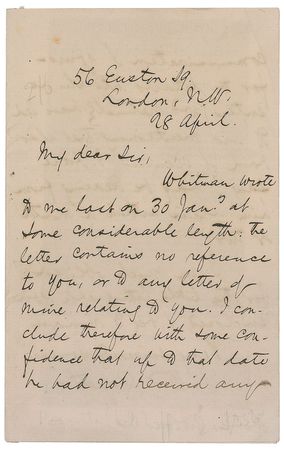 56 Euston Sq.
London, N.W.
28 April.
My dear Sir,
Whitman wrote
to me last on 30 Jany at
some considerable length: the
letter contains no reference
to you, or to any letter of
mine relating to you. I con-
clude therefore with some con-
fidence that up to that date
he had not received any